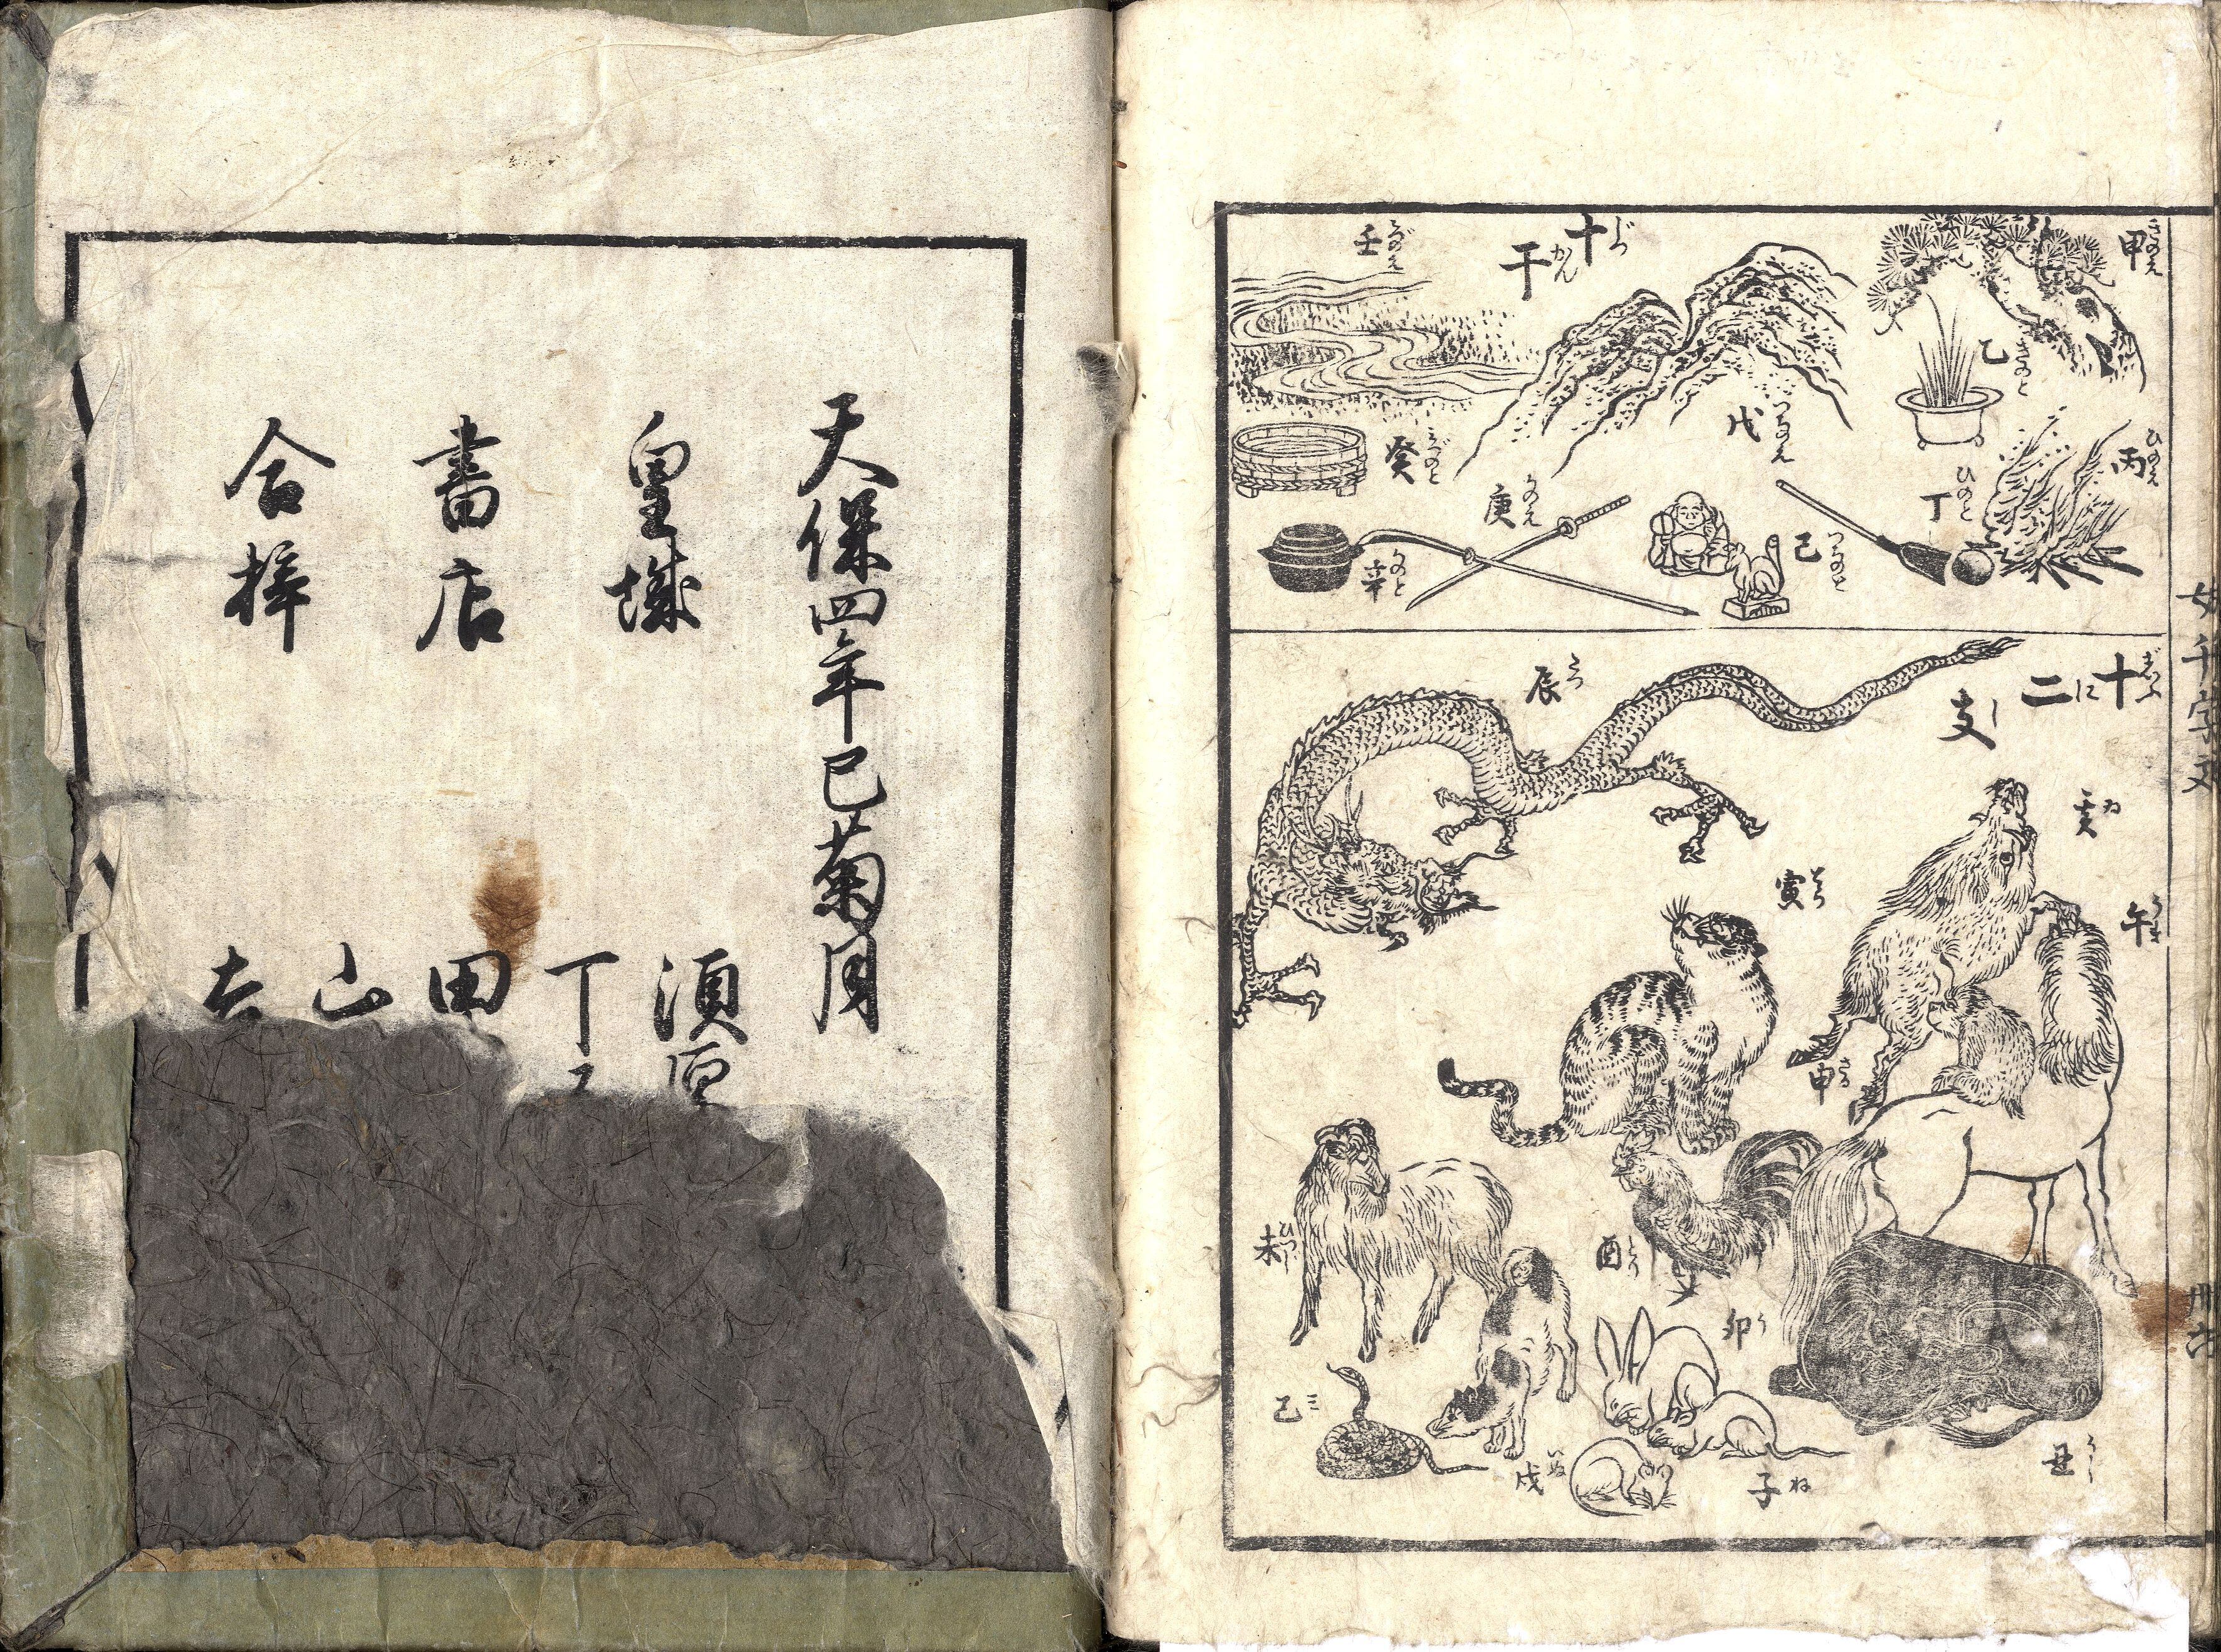 甲 きのえ
乙 きのと
丙 ひのえ
丁 ひのと
十干 じつかん
戊 つちのえ
己 つちのと
庚 かのえ
辛 かのと
壬 みづのえ
癸 みづのと
十二支 じふにし
亥 ゐ
午 うま
辰 たつ
寅 とら
申 さる
酉 とり
未 ひつじ
卯 う
丑 うし
子 ね
戌 いぬ
巳 ミ
千字文
卅六
天保四年巳菊月
皇城
書店
合梓
須原
丁子
田
山
吉